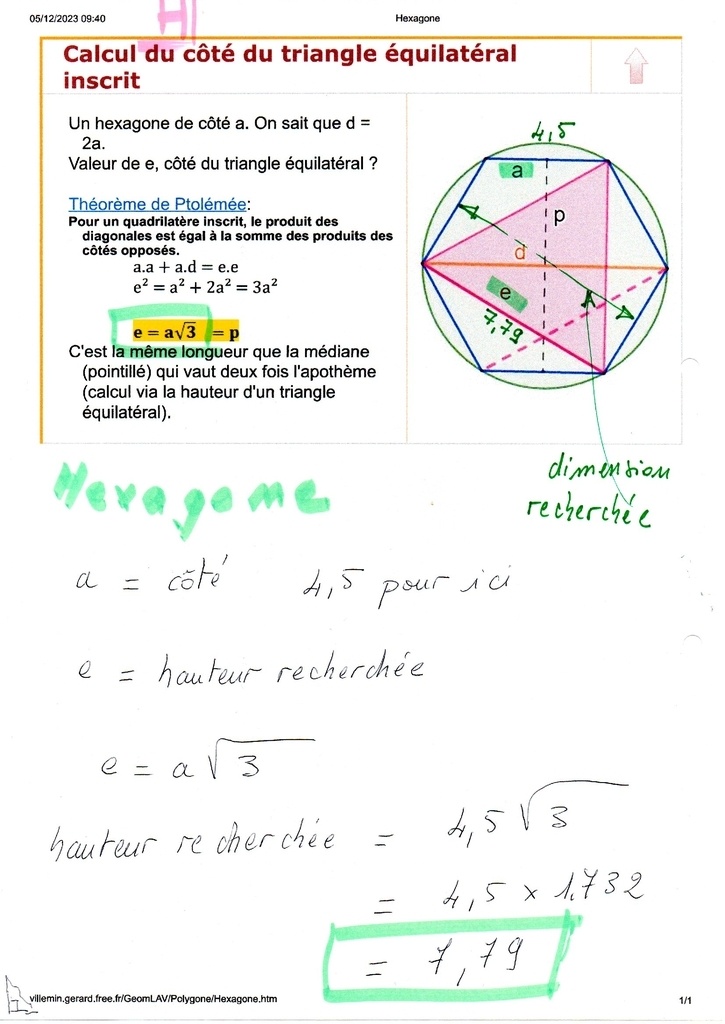 05/12/2023 09:40
Hexagone
H
Calcul du côté du triangle équilatéral
inscrit
Un hexagone de côté a. On sait que d =
2a.
Valeur de e, côté du triangle équilatéral ?
Théorème de Ptolémée:
Pour un quadrilatère inscrit, le produit des
diagonales est égal à la somme des produits des
côtés opposés.
a.a + a.d = e.e
e² = a² + 2a² = 3a²
e = a√3 = p
C'est la même longueur que la médiane
(pointillé) qui vaut deux fois l'apothème
(calcul via la hauteur d'un triangle
équilatéral).
4,5
a
p
d
e
7,79
dimension
recherchée
Hexagone
a = côté 4,5 pour ici
e = hauteur recherchée
e = a √3
hauteur recherchée = 4,5 √3
= 4,5 x 1,732
= 7,79
villemin.gerard.free.fr/GeomLAV/Polygone/Hexagone.htm
1/1